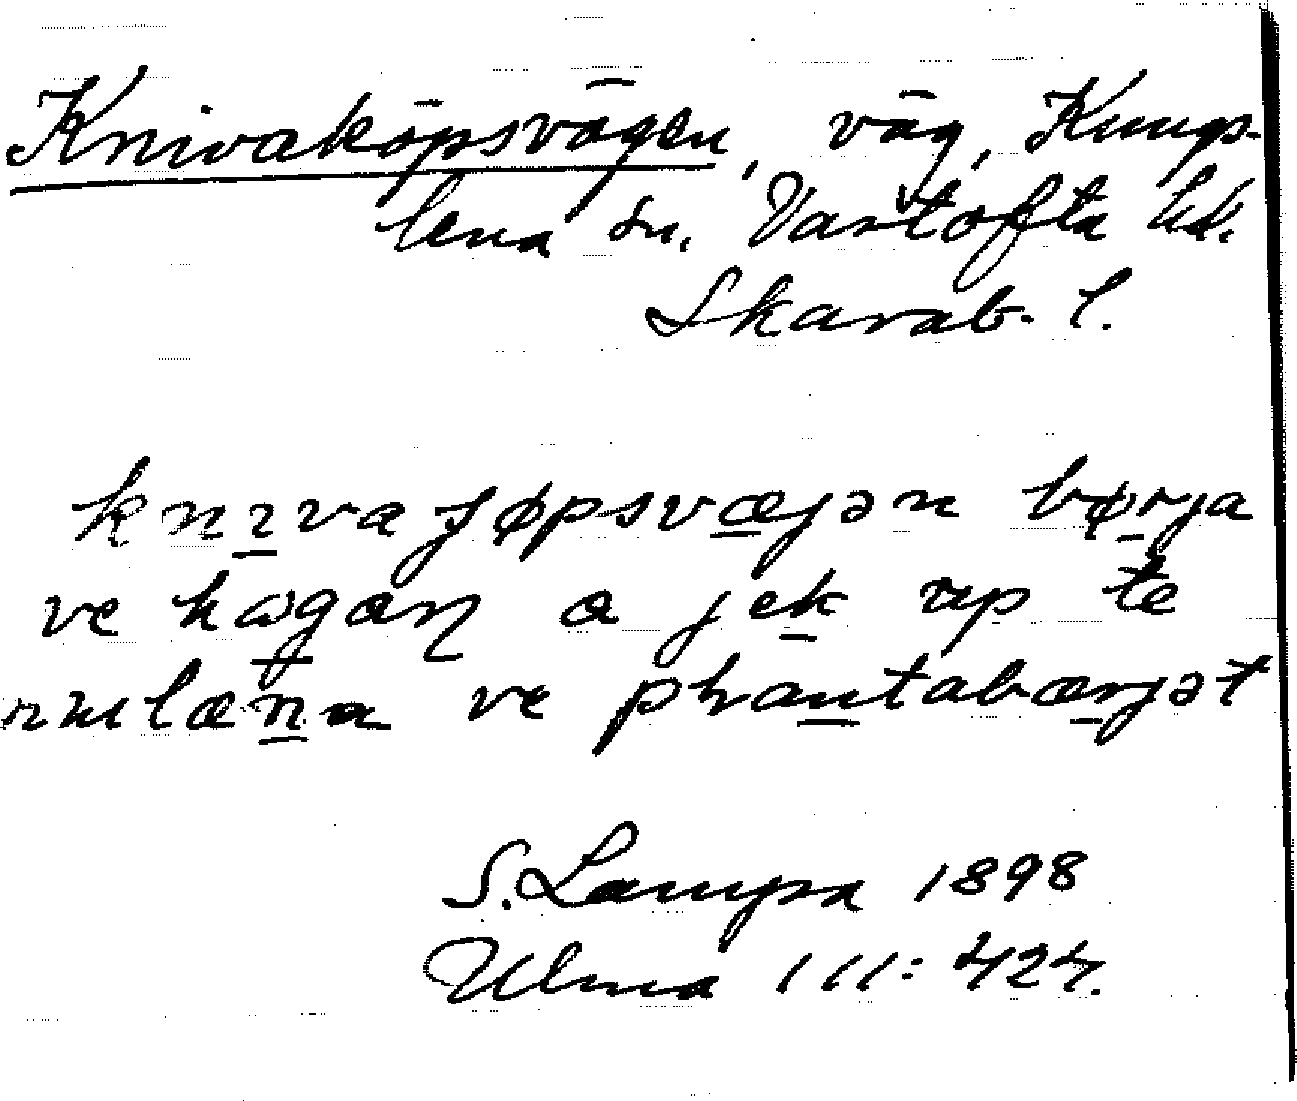 Knivaköpsvägen, väg, Kungs-
lena sn. Vartofta hd.
Skarab. l.
knɪva ʃøpsvæjən børja
ve hagan a jek up te
ve
S. Lampa 1898
Ulma 111: 424.